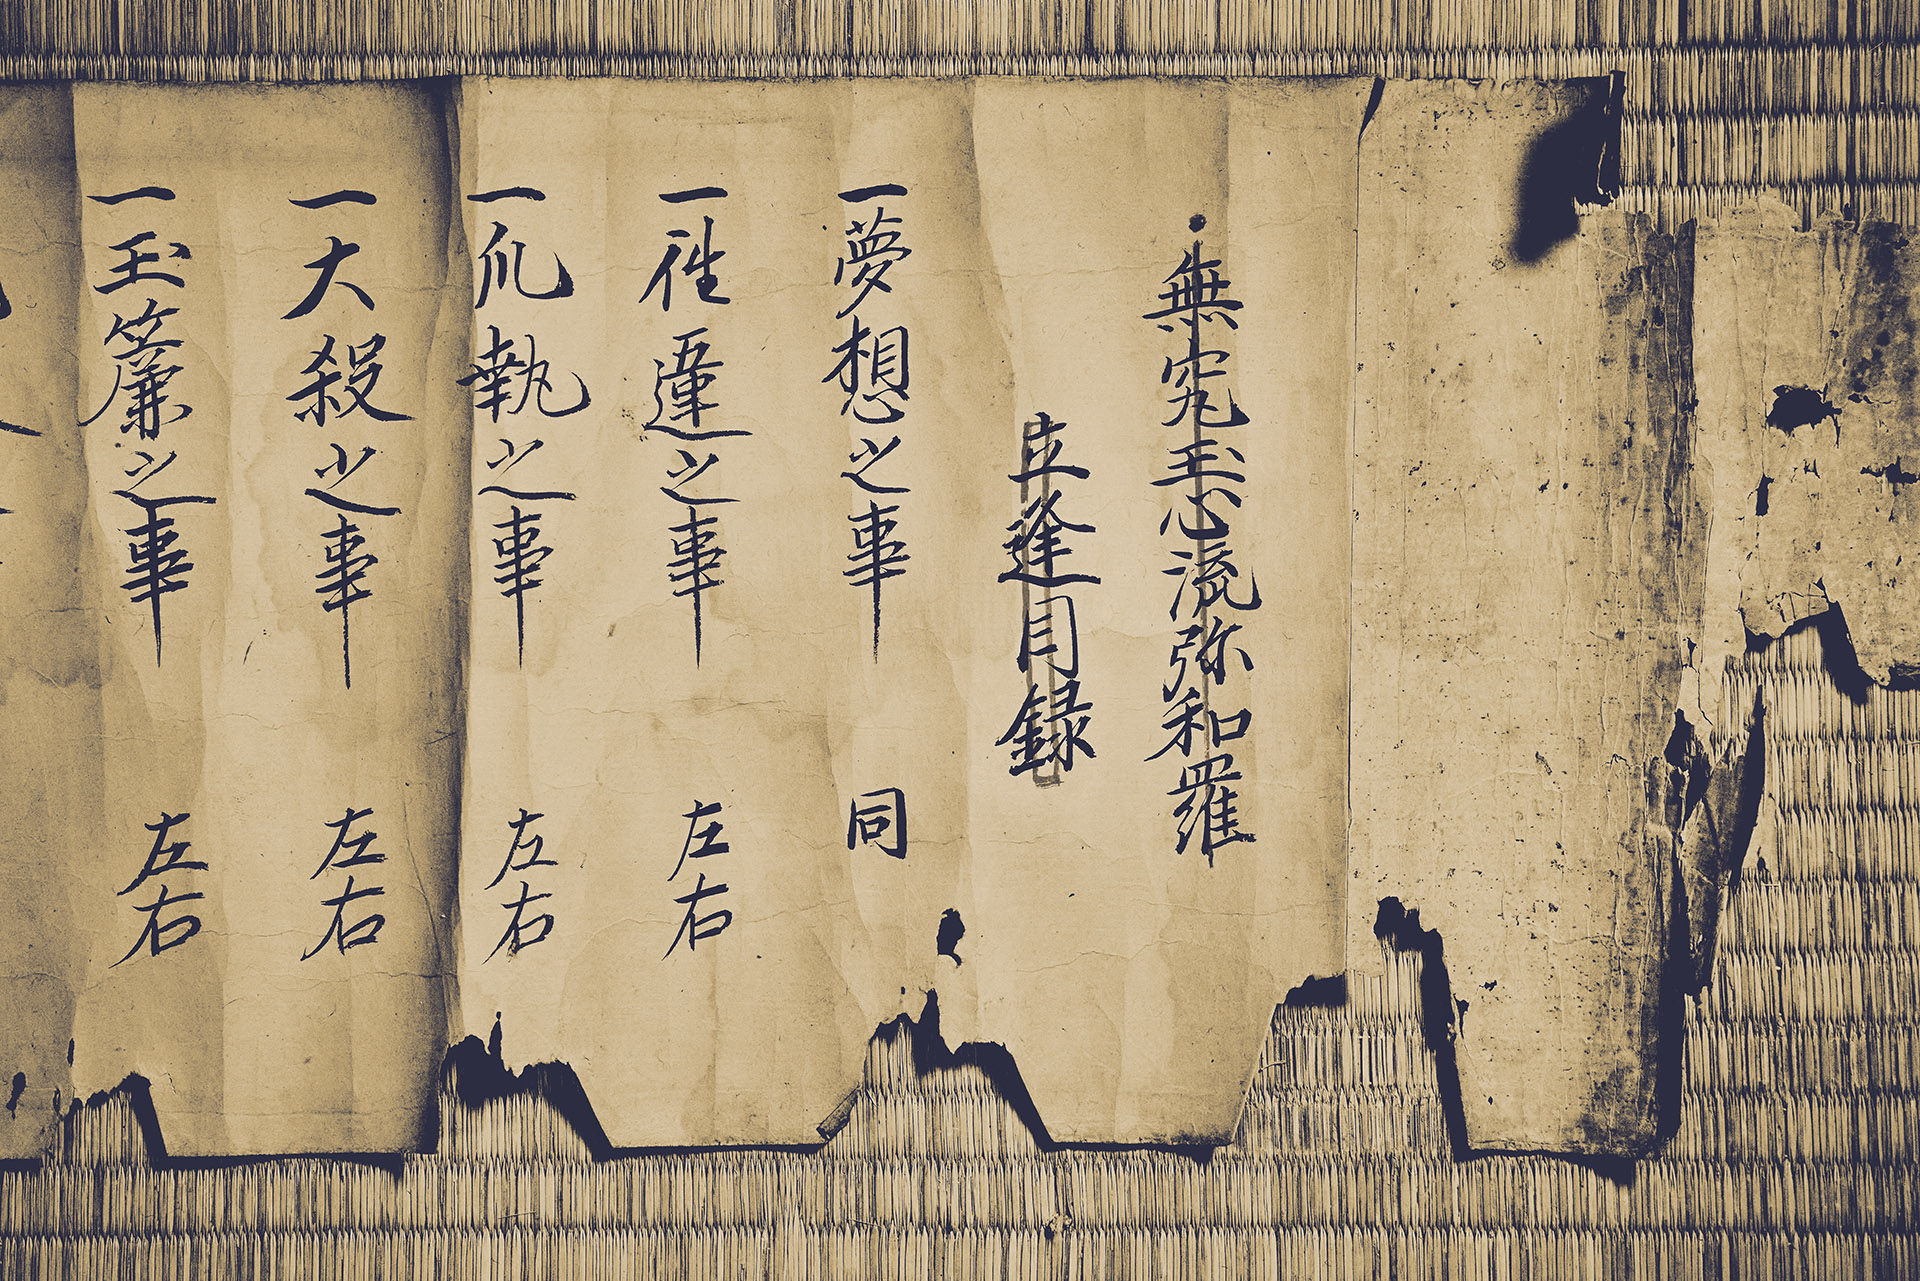 無究玉心流弥和羅
立逢目録
一夢想之事 同
一徃違之事 左右
一爪執之事 左右
一大殺之事 左右
一玉簾之事 左右